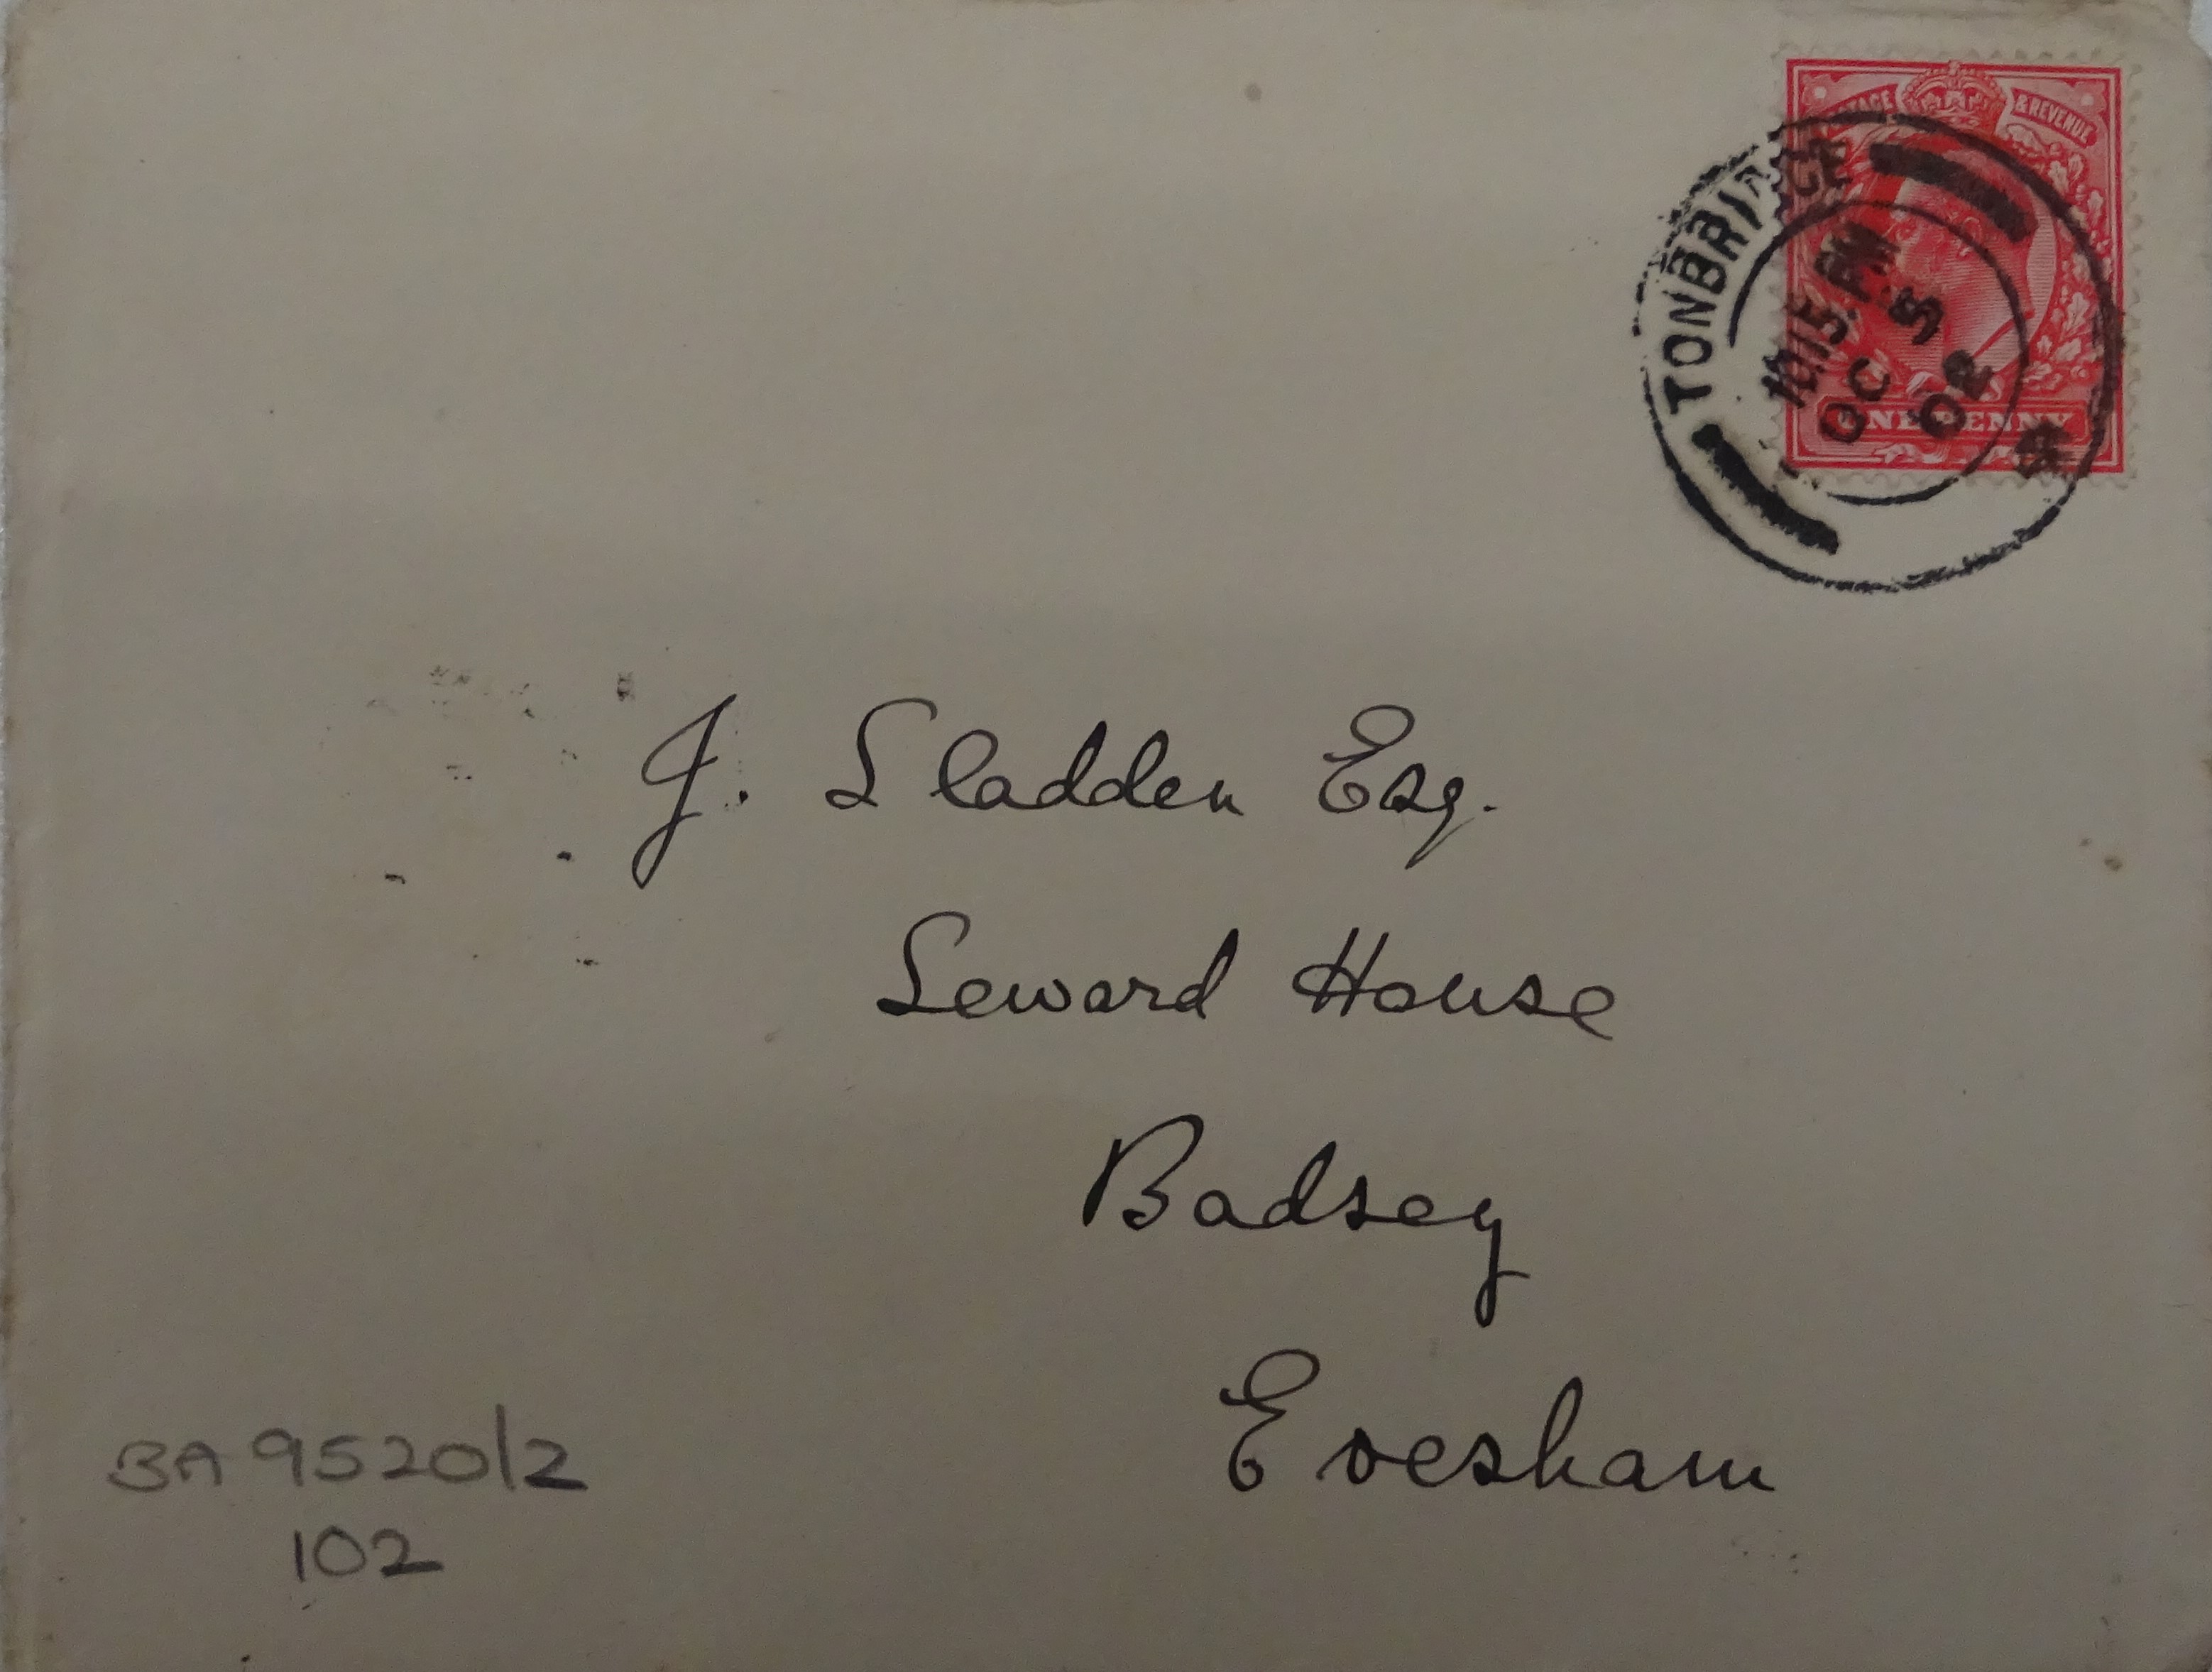 POSTAGE & REVENUE
TONBRIDGE
10.15 PM
OC 5
02
ONE PENNY
J. Sladden Esq.
Seward House
Badsey
Evesham
BA 9520/2
102